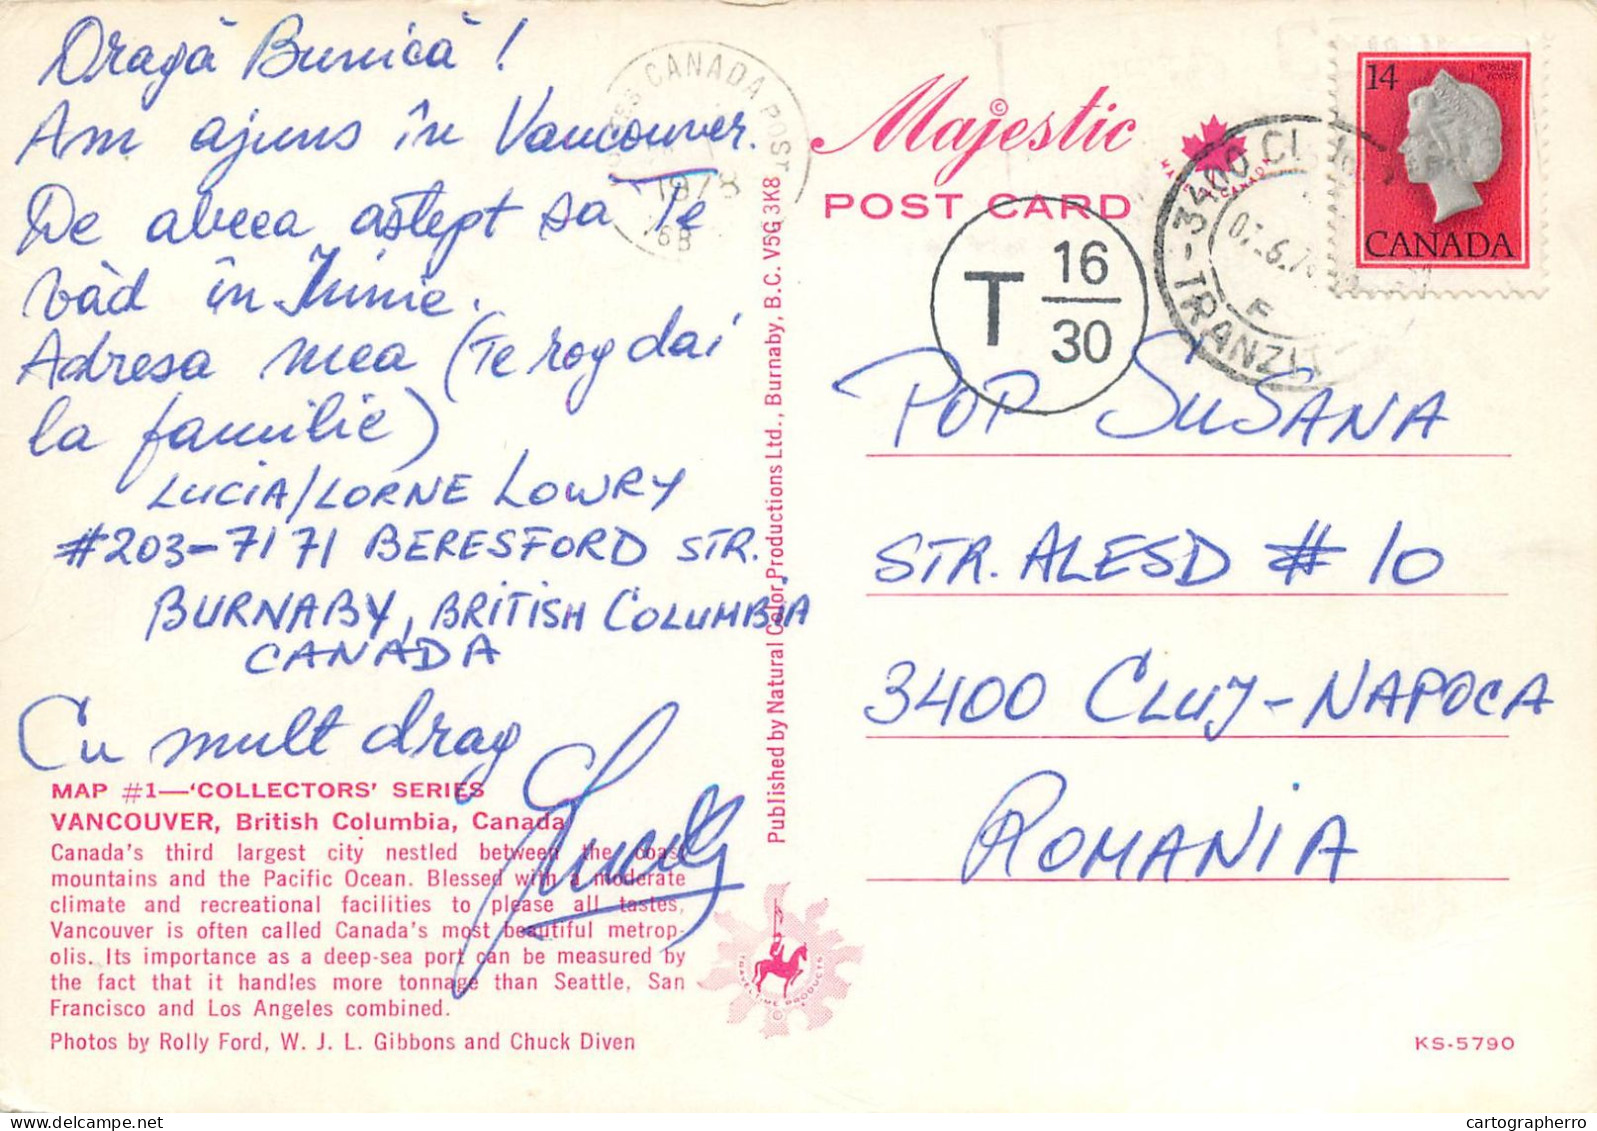 Dragă Bunică!
Am ajuns în Vancouver.
De abeea aștept sa Te
văd în Iunie.
Adresa mea (Te rog dai
la familie)
LUCIA/LORNE LOWRY
#203-7171 BERESFORD STR.
BURNABY, BRITISH COLUMBIA
CANADA
Cu mult drag
MAP #1—'COLLECTORS' SERIES
VANCOUVER, British Columbia, Canada
Canada's third largest city nestled between the coast
mountains and the Pacific Ocean. Blessed with a moderate
climate and recreational facilities to please all tastes,
Vancouver is often called Canada's most beautiful metrop-
olis. Its importance as a deep-sea port can be measured by
the fact that it handles more tonnage than Seattle, San
Francisco and Los Angeles combined.
Photos by Rolly Ford, W. J. L. Gibbons and Chuck Diven
Published by Natural Color Productions Ltd., Burnaby, B.C. V5G 3K8
CANADA POST
1978
Majestic ©
POST CARD
T 16
30
3400 CL
TRANZIT
14
CANADA
POP SUSANA
STR. ALESD # 10
3400 CLUJ-NAPOCA
ROMANIA
TRAVELTIME PRODUCTS
KS-5790
cartographerro